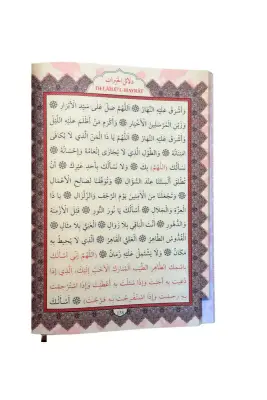 دلائل الخيرات
DELÂİLÜ'L-HAYRÂT
وَأَشْرَقَ عَلَيْهِ النَّهَارُ ۞ اَللّٰهُمَّ صَلِّ عَلٰى سَيِّدِ الْأَبْرَارِ ۞
وَزَيْنِ الْمُرْسَلِينَ الْأَخْيَارِ ۞ وَأَكْرَمِ مَنْ أَظْلَمَ عَلَيْهِ اللَّيْلُ
وَأَشْرَقَ عَلَيْهِ النَّهَارُ ۞ اَللّٰهُمَّ يَا ذَا الْمَنِّ الَّذِي لَا يُكَافٰى
امْتِنَانُهُ ۞ وَالطَّوْلِ الَّذِي لَا يُجَازٰى إِنْعَامُهُ وَإِحْسَانُهُ ۞
نَسْأَلُكَ (اَللّٰهُمَّ) بِكَ ۞ وَلَا نَسْأَلُكَ بِأَحَدٍ غَيْرِكَ ۞ أَنْ
تُطْلِقَ أَلْسِنَتَنَا عِنْدَ السُّؤَالِ ۞ وَتُوَفِّقَنَا لِصَالِحِ الْأَعْمَالِ
۞ وَتَجْعَلَنَا مِنَ الْآمِنِينَ يَوْمَ الرَّجْفِ وَالزَّلْزَالِ ۞ يَا ذَا
الْعِزَّةِ وَالْجَلَالِ ۞ أَسْأَلُكَ يَا نُورَ النُّورِ ۞ قَبْلَ الْأَزْمِنَةِ
وَالدُّهُورِ ۞ أَنْتَ الْبَاقِي بِلَا زَوَالٍ ۞ الْغَنِيُّ بِلَا مِثَالٍ ۞
الْقُدُّوسُ الطَّاهِرُ ۞ الْعَلِيُّ الْقَاهِرُ ۞ الَّذِي لَا يُحِيطُ بِهِ
مَكَانٌ ۞ وَلَا يَشْتَمِلُ عَلَيْهِ زَمَانٌ ۞ (اَللّٰهُمَّ إِنِّي أَسْأَلُكَ
بِاسْمِكَ الطَّاهِرِ الطَّيِّبِ الْمُبَارَكِ الْأَحَبِّ إِلَيْكَ، الَّذِي إِذَا
دُعِيتَ بِهِ أَجَبْتَ وَإِذَا سُئِلْتَ بِهِ أَعْطَيْتَ وَإِذَا اسْتُرْحِمْتَ
بِهِ رَحِمْتَ وَإِذَا اسْتُفْرِجْتَ بِهِ فَرَّجْتَ) ۞ أَسْأَلُكَ